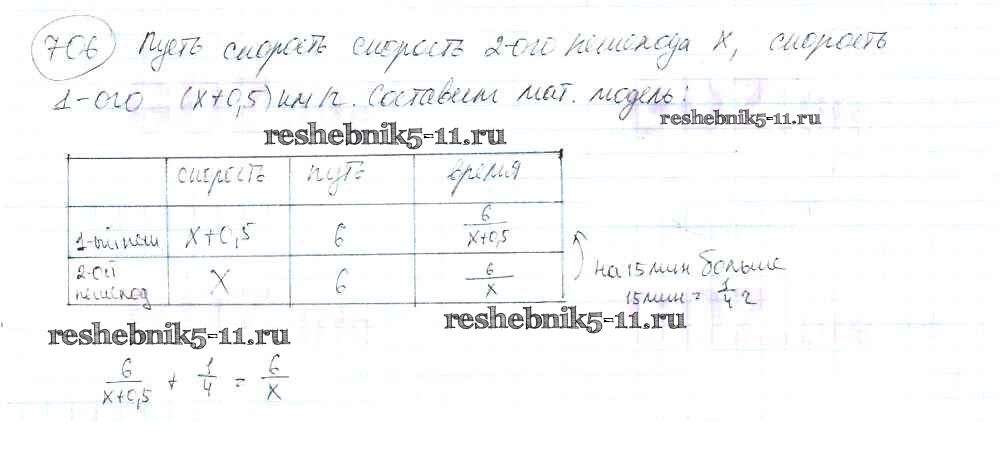 706 Пусть скорость скорость 2-ого пешехода x, скорость
1-ого (x+0,5) км/ч. Составим мат. модель:
reshebnik5-11.ru
reshebnik5-11.ru
скорость путь время
1-ый пеш x+0,5 6 6/(x+0,5)
2-ой пешеход x 6 6/x
на 15 мин больше
15 мин = 1/4 ч
reshebnik5-11.ru
reshebnik5-11.ru
6/(x+0,5) + 1/4 = 6/x